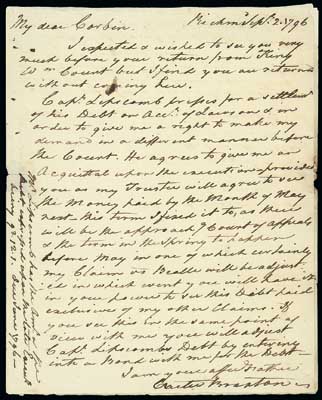 My dear Corbin. Richmd Sepr. 2. 1796
I expected & wished to see you very
much before your return from King
Wm Court but I find you are returned
without coming here.
Capt. Lipscomb presses for a settlemt
of his Debt on Acct. of Lawson & in
order to give me a right to make my
demand in a different manner before
the Court. He agrees to give me an
Acquittal upon the execution provided
you as my Trustee will agree to see
the Money paid by the Month of May
next. this term I fixed it to, as there
will be the approach of Court of appeals
& the term in the Spring to happen
before May in one of which certainly
my Claim vs Beall will be adjust
ed in which event you will have it
in your power to see this Debt paid
exclusive of my other Claims. If
you see this in the same point of
view with me you will adjust
Capt. Lipscombs Debt by entering
into a Bond with me for the Debt
I am your affect Father
Carter Braxton
Mr. Lipscomb has the